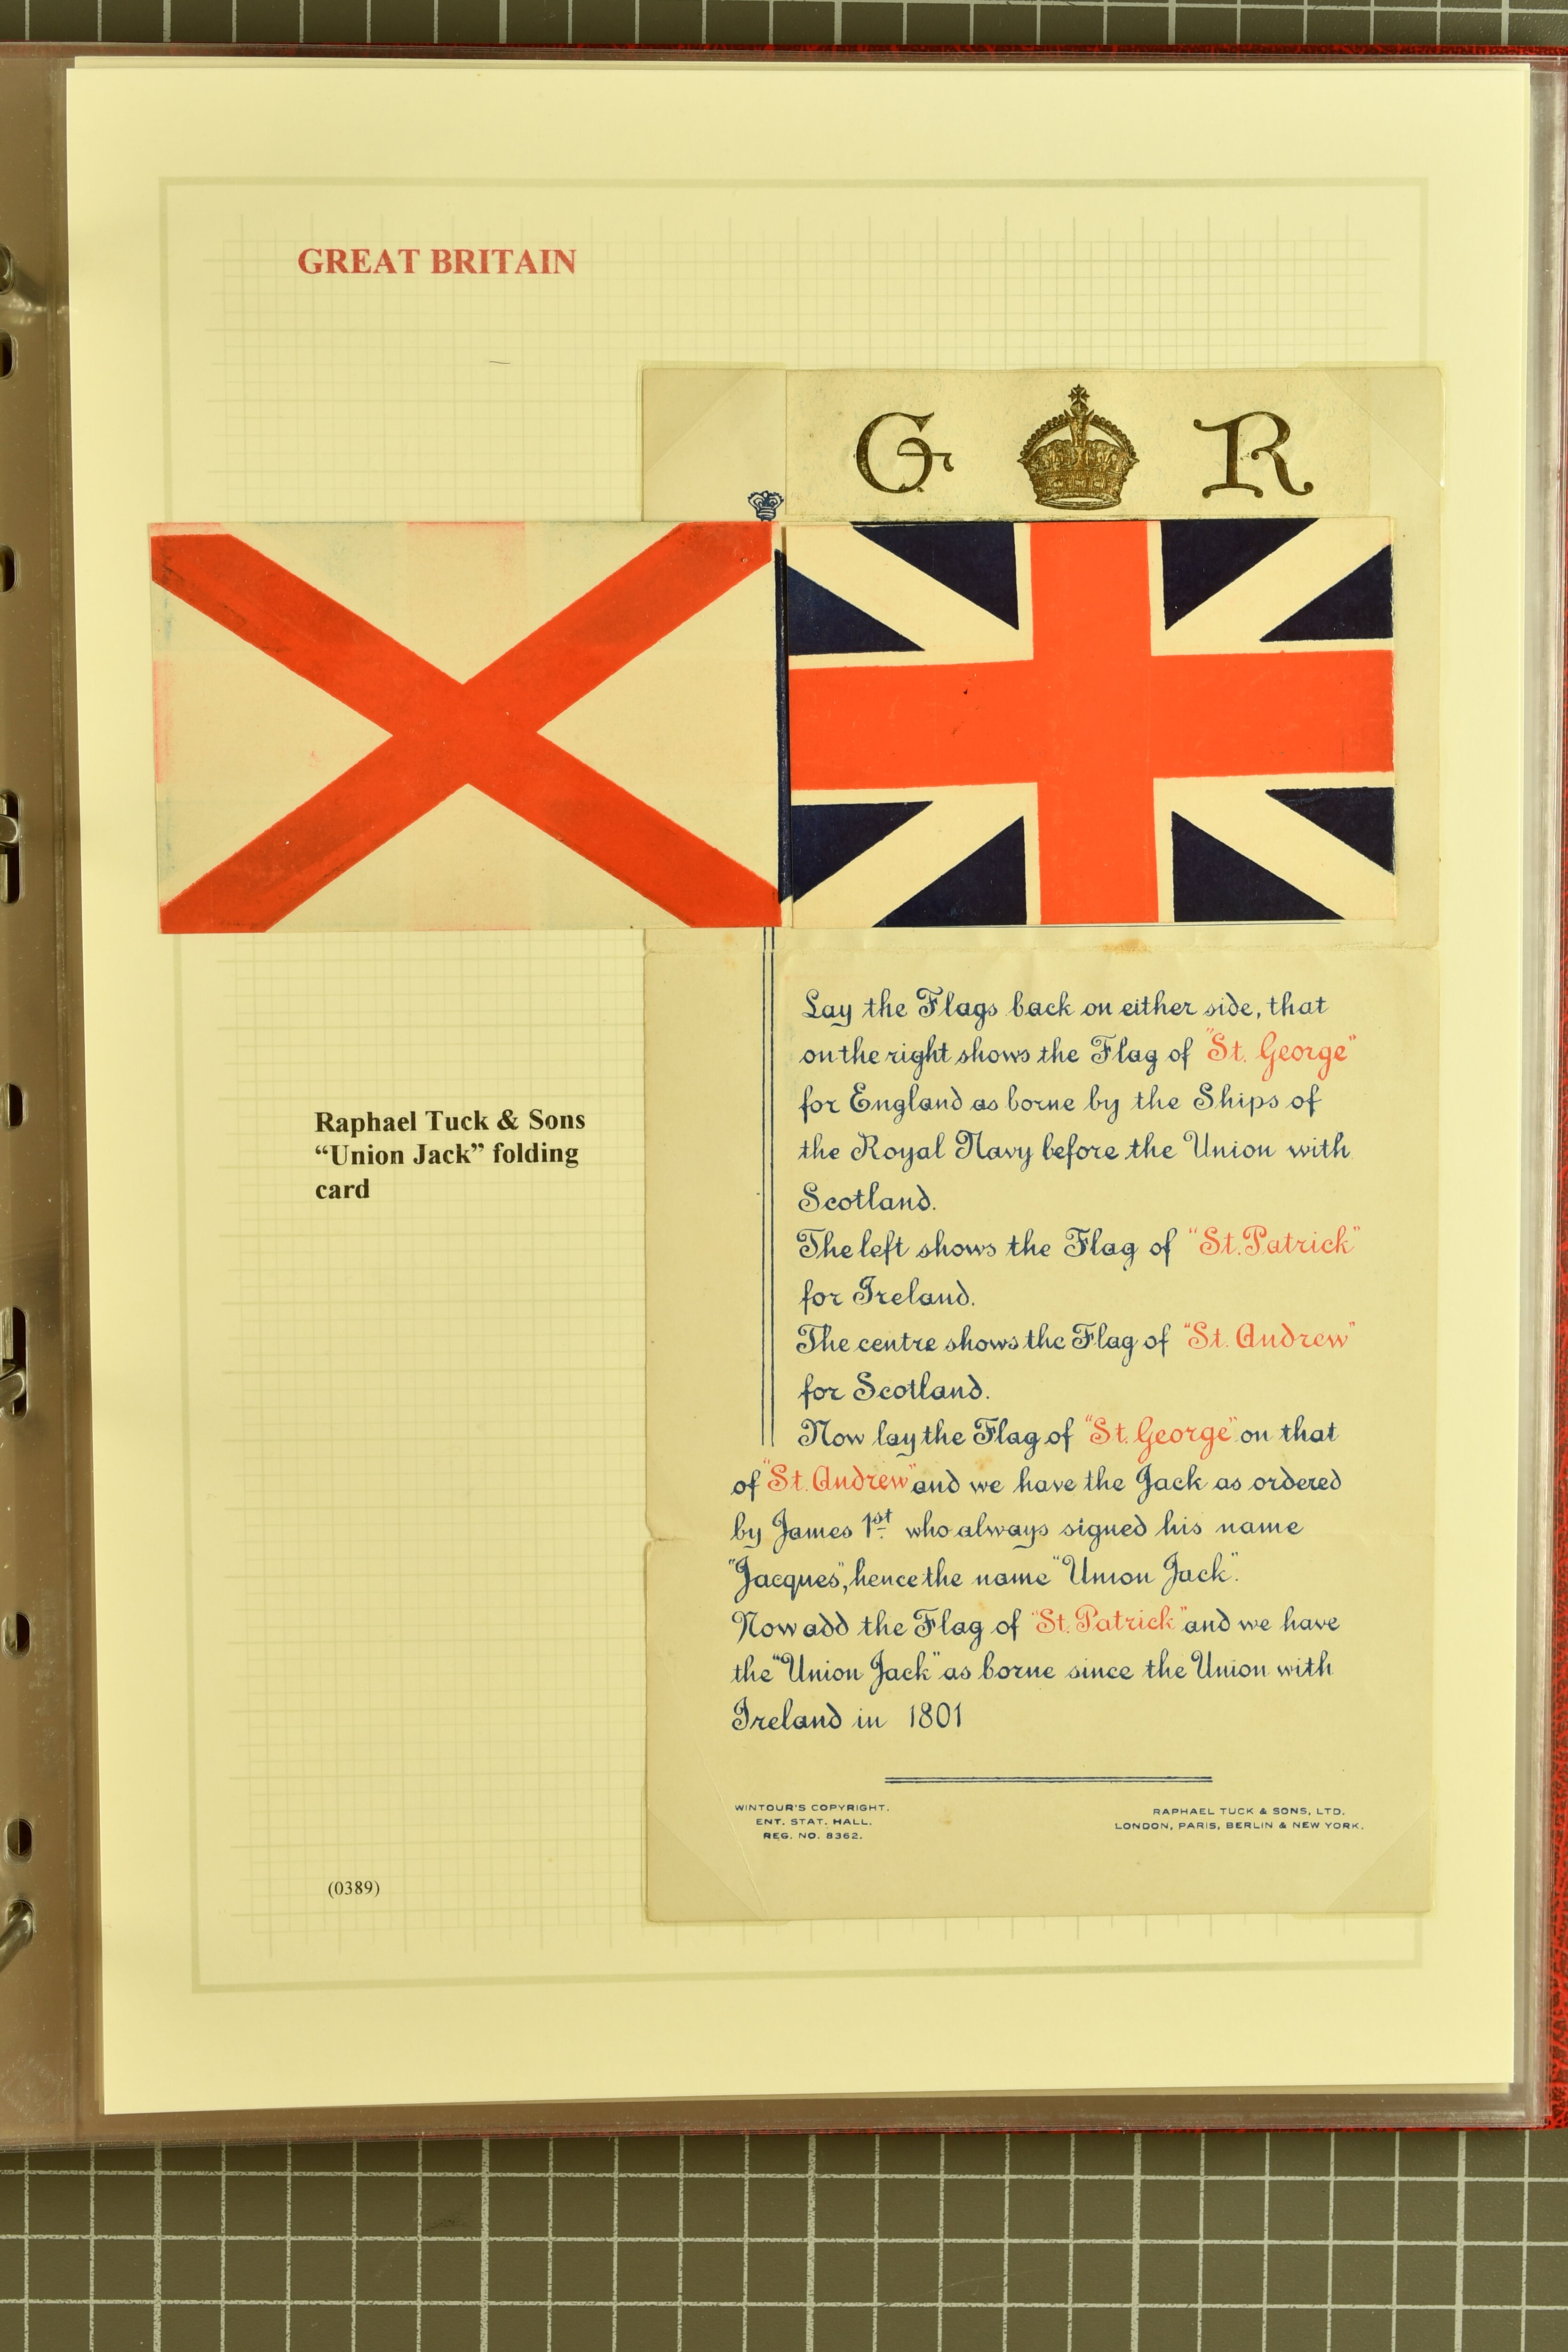 GREAT BRITAIN
G R
Lay the Flags back on either side, that
on the right shows the Flag of "St. George"
for England as borne by the Ships of
the Royal Navy before the Union with
Scotland.
The left shows the Flag of "St. Patrick"
for Ireland.
The centre shows the Flag of "St. Andrew"
for Scotland.
Now lay the Flag of "St. George" on that
of "St. Andrew" and we have the Jack as ordered
by James 1st who always signed his name
"Jacques", hence the name "Union Jack".
Now add the Flag of "St. Patrick" and we have
the "Union Jack" as borne since the Union with
Ireland in 1801
Raphael Tuck & Sons
“Union Jack” folding
card
WINTOUR'S COPYRIGHT.
ENT. STAT. HALL.
REG. NO. 8362.
RAPHAEL TUCK & SONS, LTD.
LONDON, PARIS, BERLIN & NEW YORK.
(0389)